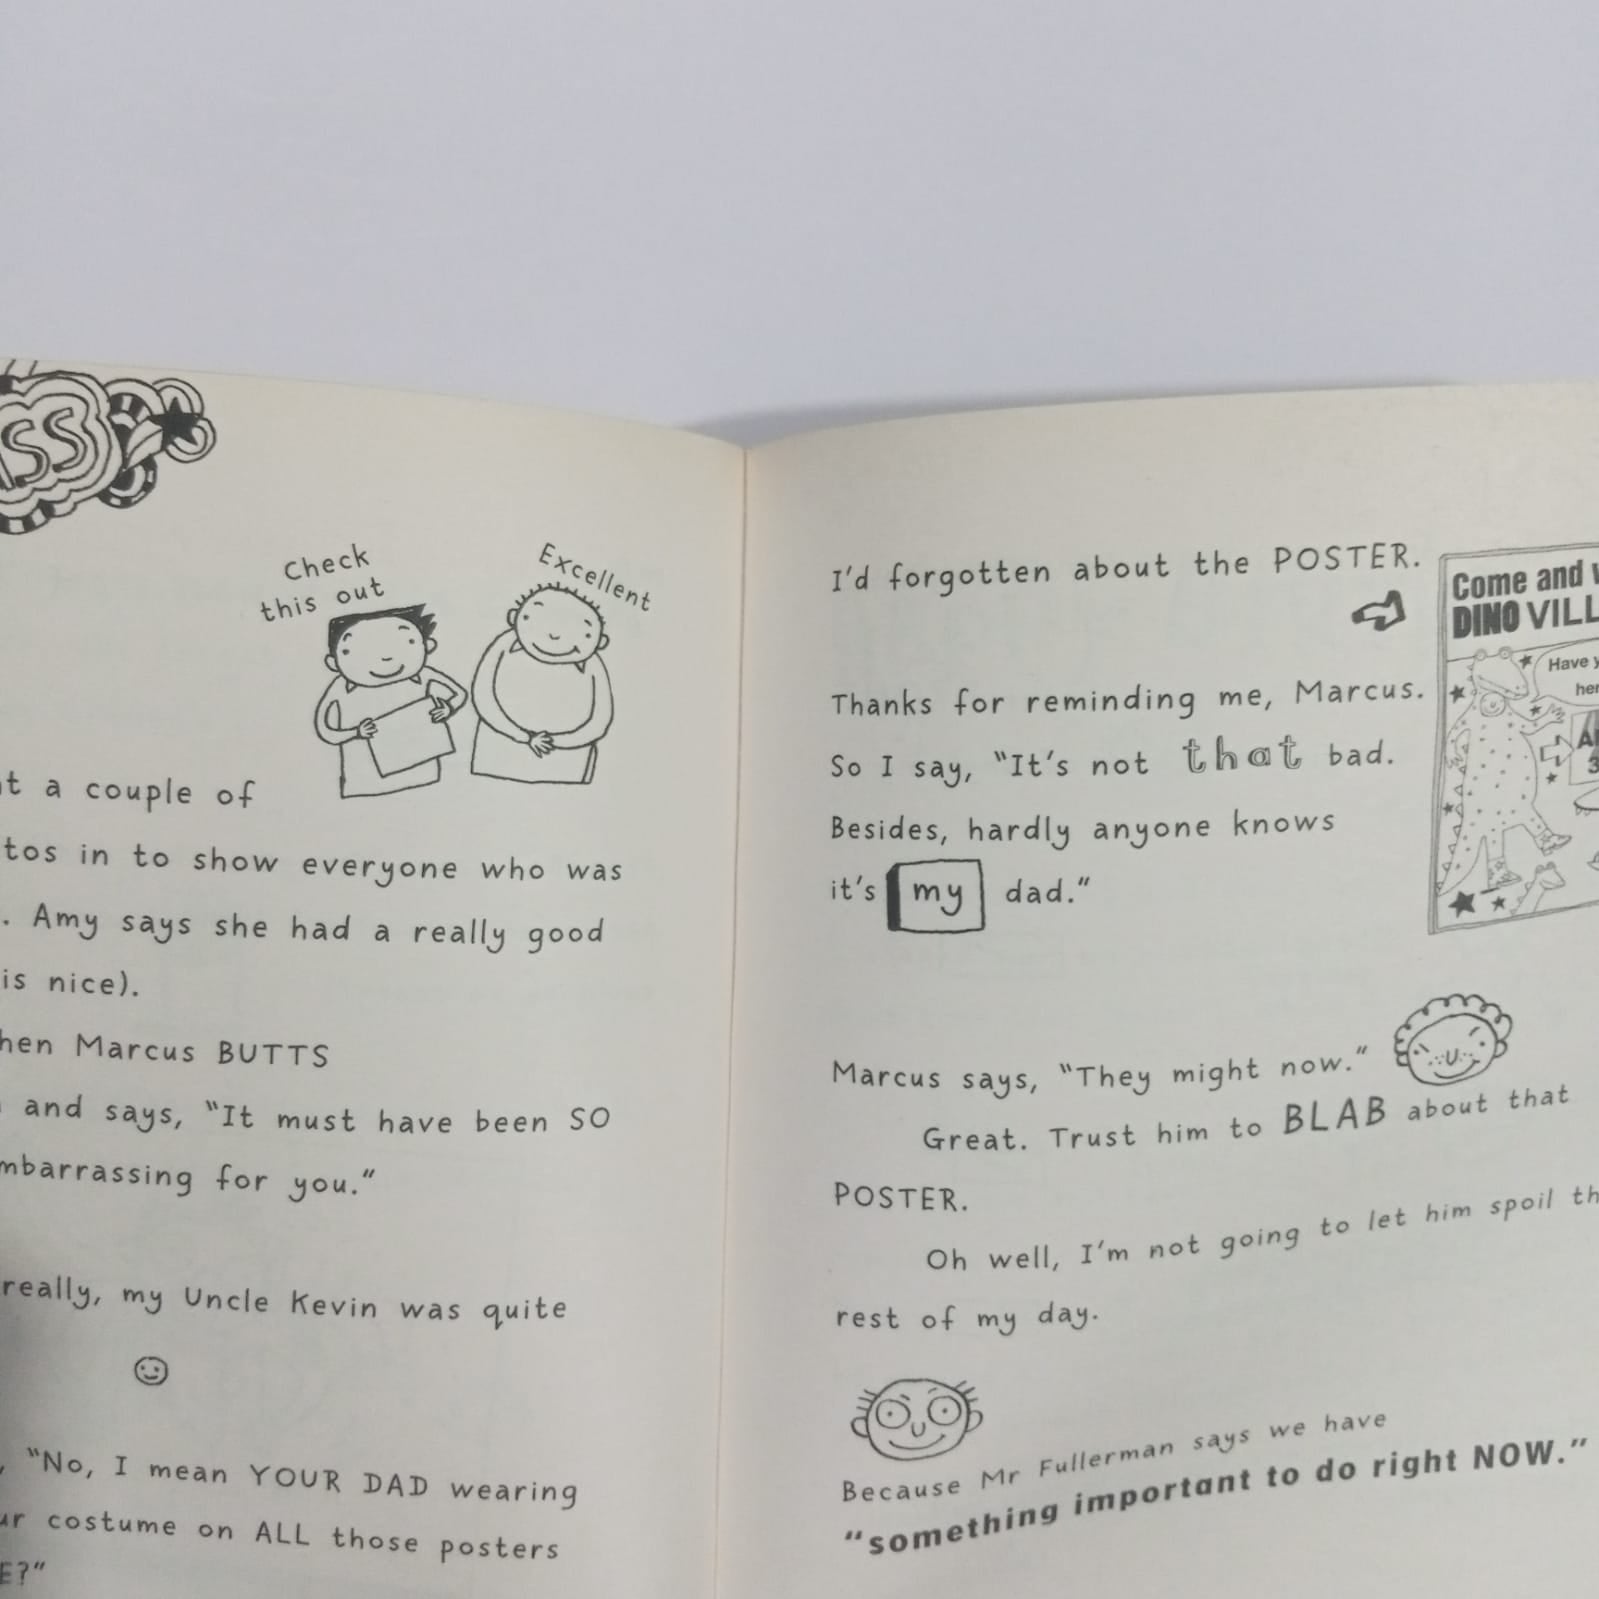 Check
this out
Excellent
a couple of
in to show everyone who was
Amy says she had a really good
is nice).
Marcus BUTTS
and says, "It must have been SO
for you."
really, my Uncle Kevin was quite
"No, I mean YOUR DAD wearing
costume on ALL those posters
I'd forgotten about the POSTER.
Come and
DINO
Have
Thanks for reminding me, Marcus.
So I say, "It's not that bad.
Besides, hardly anyone knows
it's my dad."
Marcus says, "They might now."
Great. Trust him to BLAB about that
POSTER.
Oh well, I'm not going to let him spoil
rest of my day.
Because Mr Fullerman says we have
"something important to do right NOW."